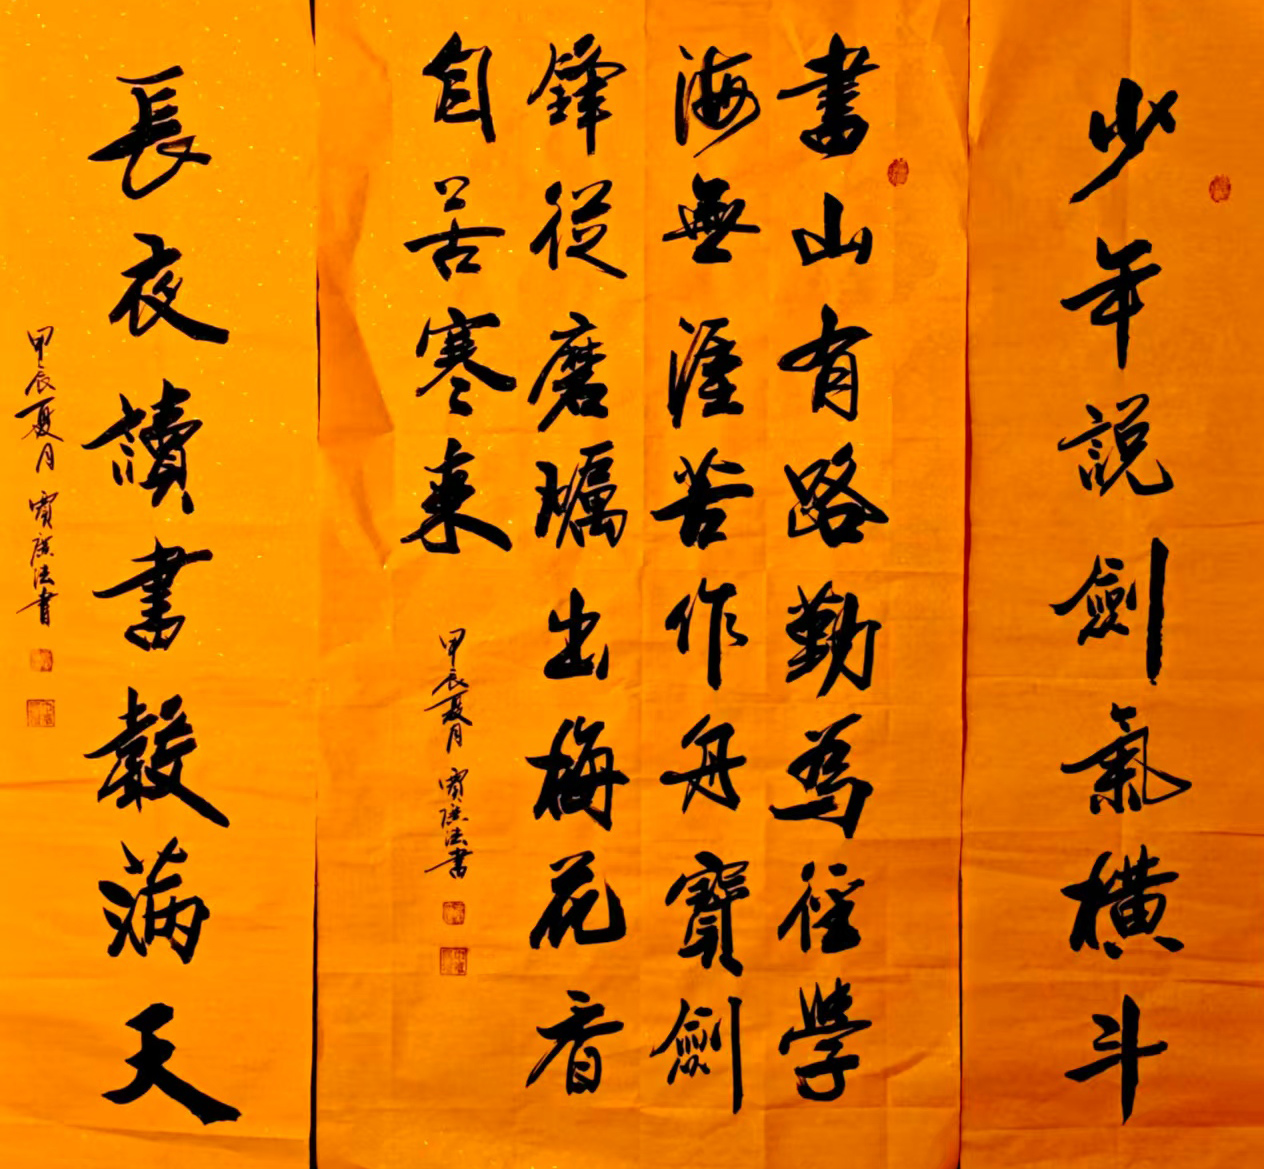 少年說劍氣橫斗
書山有路勤為徑學
海無涯苦作舟寶劍
鋒從磨礪出梅花香
自苦寒来
甲辰夏月 法書
長夜讀書聲滿天
甲辰夏月 法書